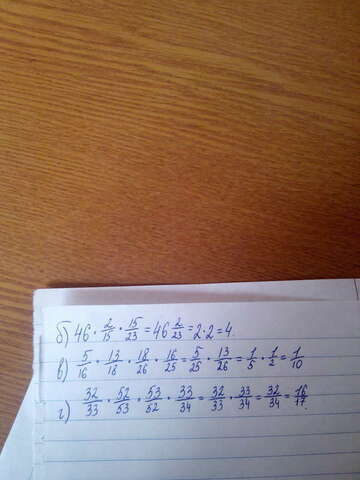 б) 46 · 2/15 · 15/23 = 46 2/23 = 2 · 2 = 4.
в) 5/16 · 13/18 · 18/26 · 16/25 = 5/25 · 13/26 = 1/5 · 1/2 = 1/10
г) 32/33 · 52/53 · 53/52 · 33/34 = 32/33 · 33/34 = 32/34 = 16/17